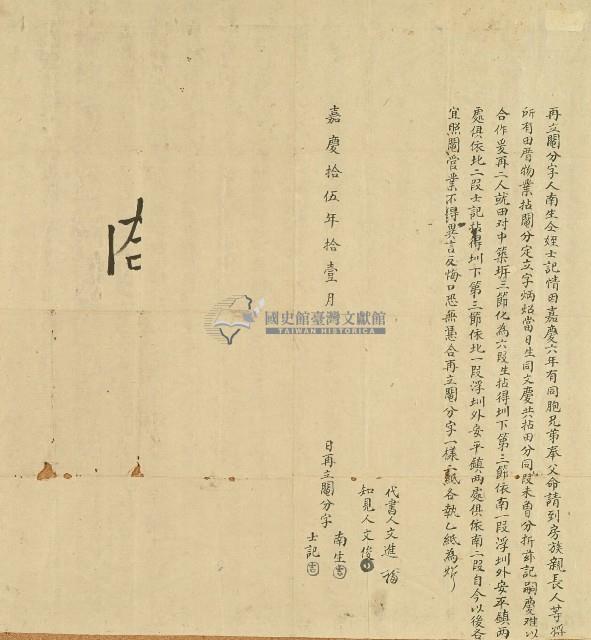 再立鬮分字人南生仝姪士記情因嘉慶六年有同胞兄弟奉父命請到房族親長人等將
所有田厝物業拈鬮分定立字炳炤當日生同文慶共拈田分同段未曾分折茲記嗣慶难以
合作爰再二人就田对中築垪三節化為六段生拈得圳下第三節依南一段浮圳外安平鎮兩
處俱依北二段士記拈得圳下第三節依北一段浮圳外安平鎮两處俱依南二段自今以後各
宜照鬮管業不得異言反悔口恐無憑合再立鬮分字一樣二紙各執乙紙為炤
代書人文進
知見人文俊
嘉慶拾伍年拾壹月 日再立鬮分字
南生
士記
國史館臺灣文獻館
TAIWAN HISTORICA